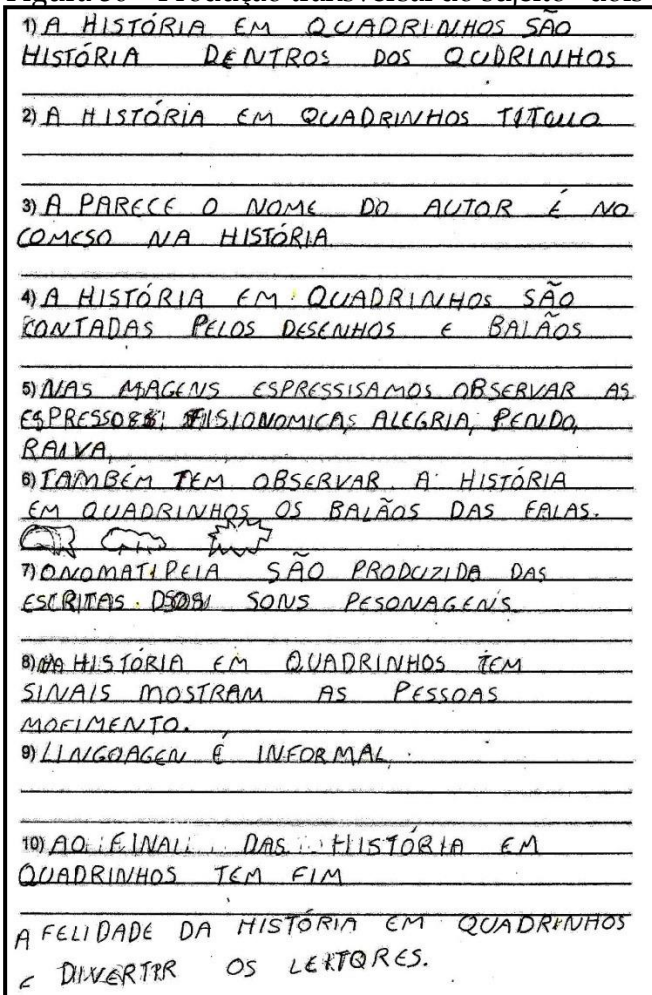 1) A HISTÓRIA EM QUADRINHOS SÃO
HISTÓRIA DENTROS DOS QUDRINHOS
2) A HISTÓRIA EM QUADRINHOS TITULO
3) A PARECE O NOME DO AUTOR É NO
COMESO NA HISTÓRIA
4) A HISTÓRIA EM QUADRINHOS SÃO
CONTADAS PELOS DESENHOS E BALÃOS
5) NAS MAGENS ESPRESSISAMOS OBSERVAR AS
ESPRESSOES FISIONOMICAS ALEGRIA, PENDO,
RAIVA,
6) TAMBÉM TEM OBSERVAR A HISTÓRIA
EM QUADRINHOS OS BALÃOS DAS FALAS.
7) ONOMATIPEIA SÃO PRODUZIDA DAS
ESCRITAS SONS PESONAGENS
8) NA HISTÓRIA EM QUADRINHOS TEM
SINAIS MOSTRAM AS PESSOAS
MOFIMENTO.
9) LINGOAGEN É INFORMAL.
10) AO FINAL DAS HISTÓRIA EM
QUADRINHOS TEM FIM
A FELIDADE DA HISTÓRIA EM QUADRINHOS
E DIVERTIR OS LEITORES.